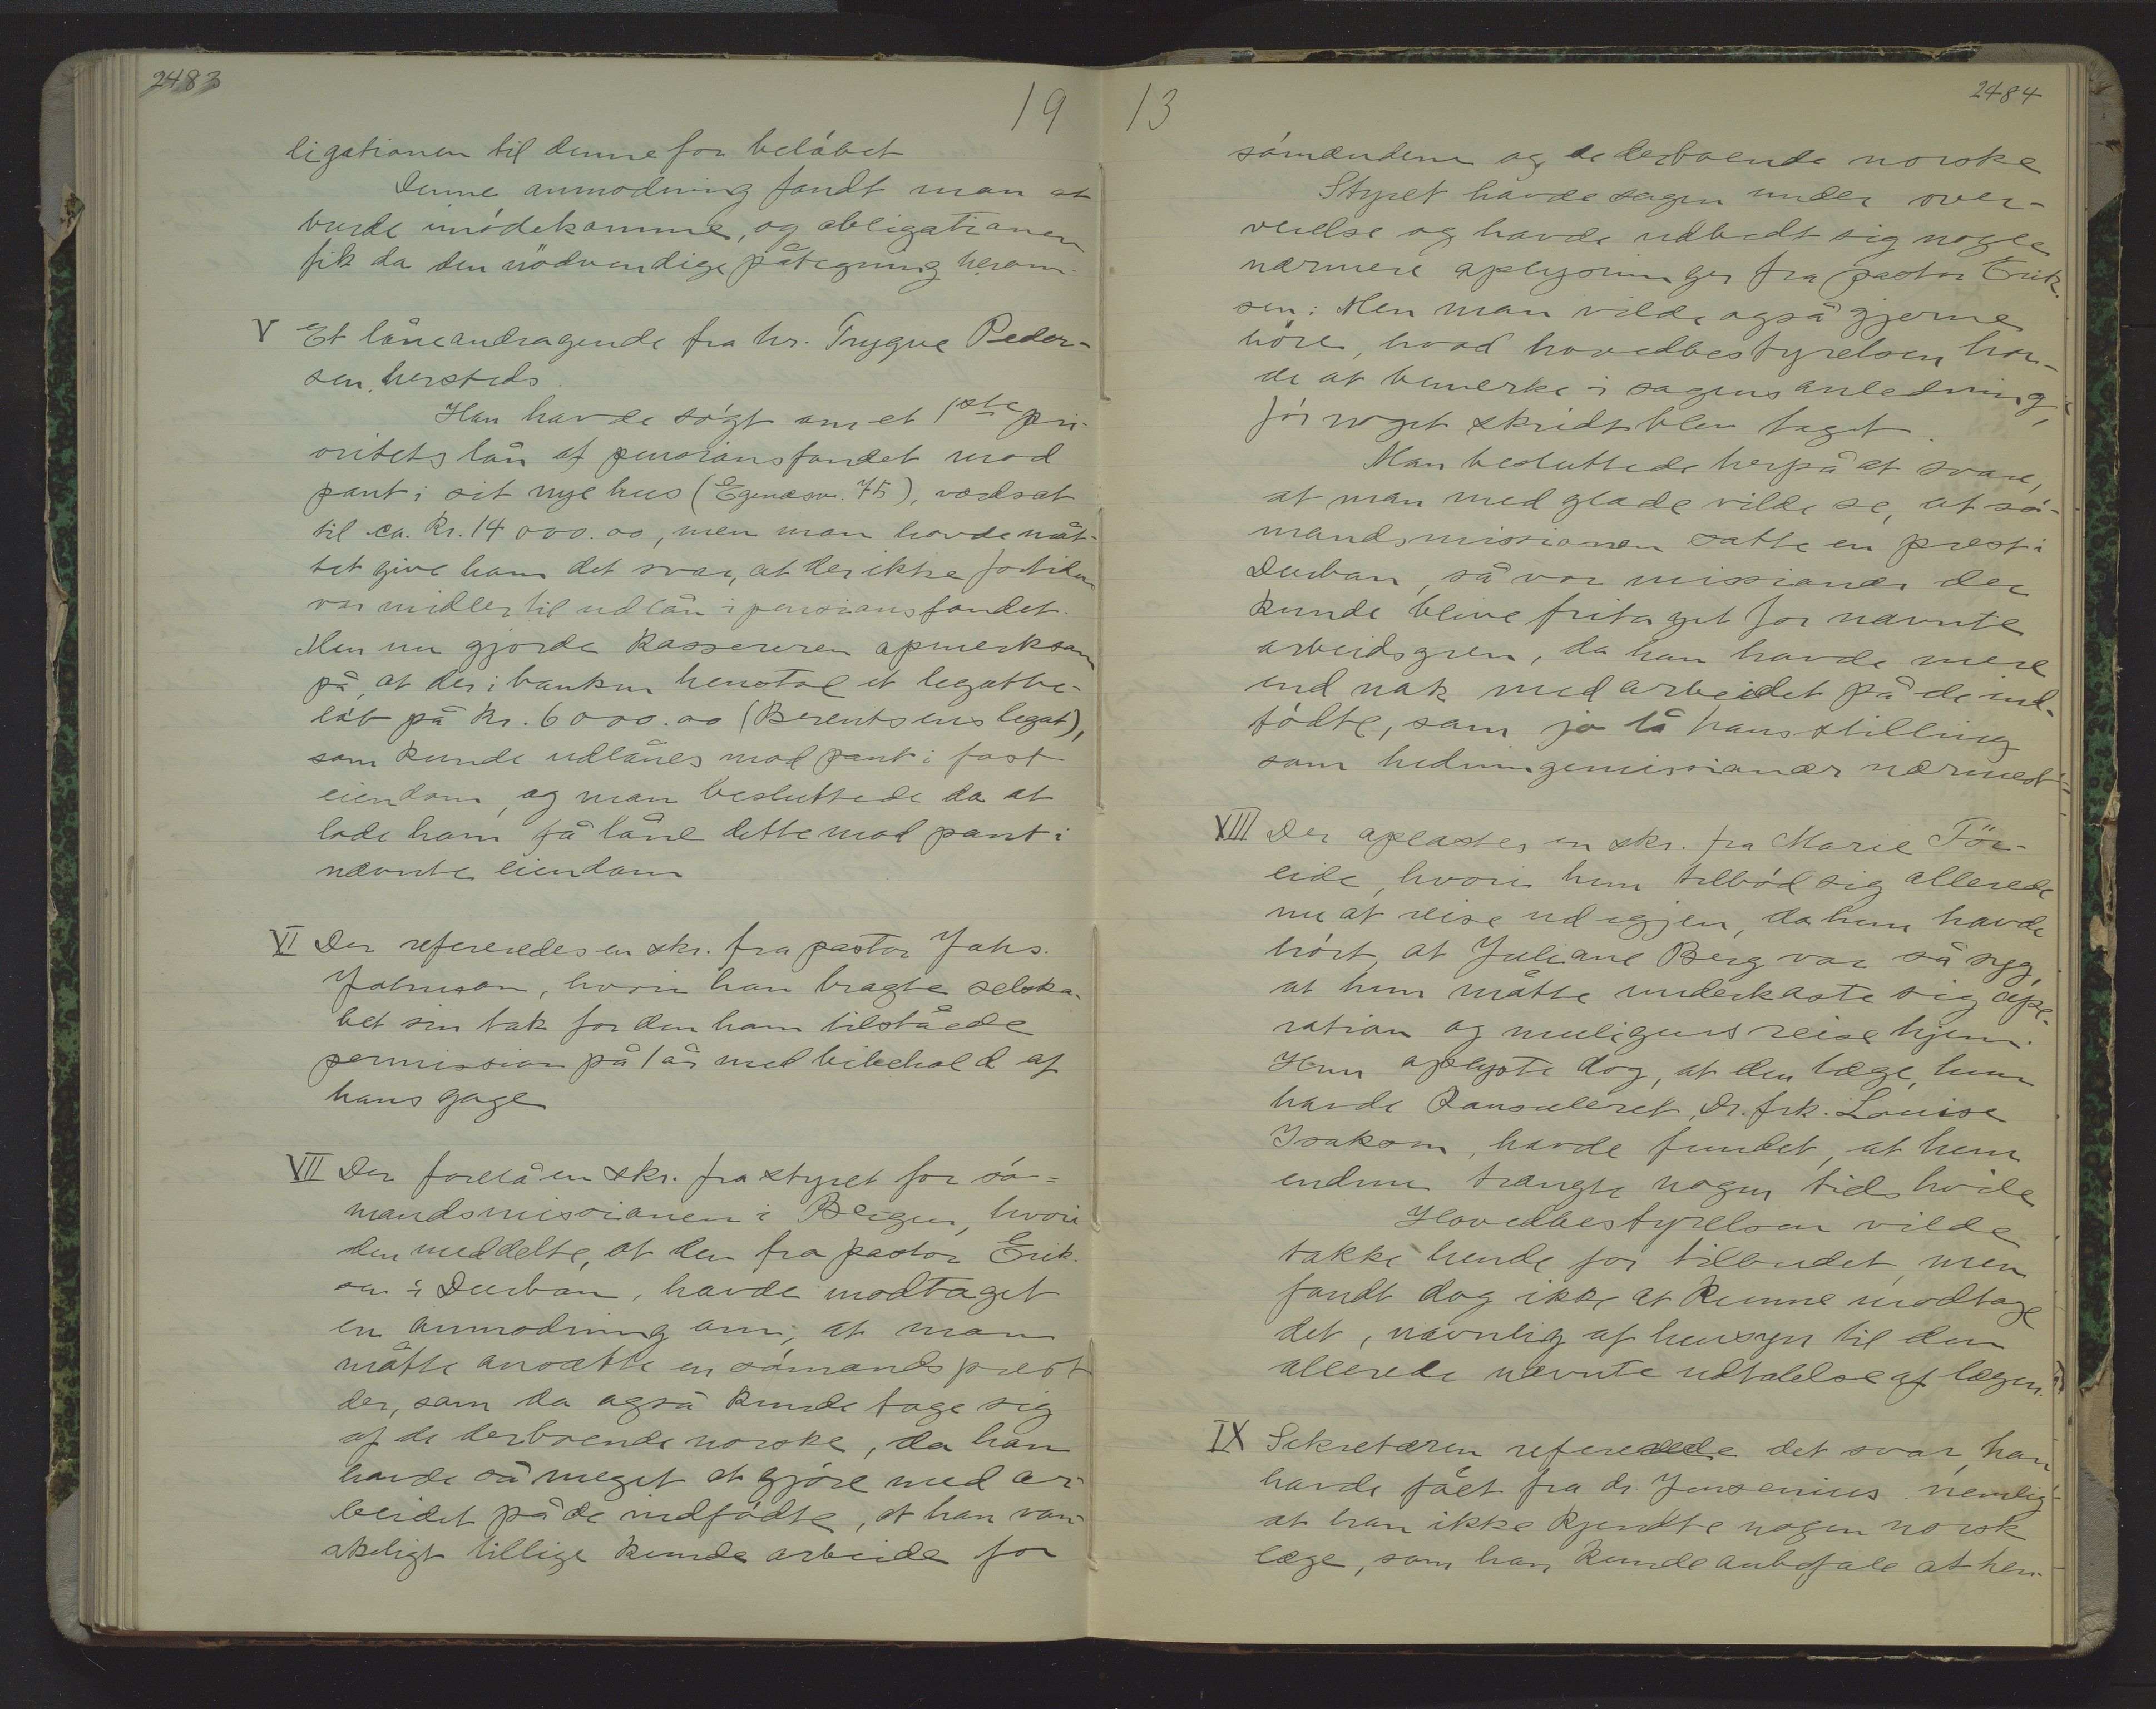 2483
19
ligationen til denne for beløbet
Denne anmodning fandt man at
burde imødekomme, og obligationen
fik da den nødvendige påtegning herom.
V Et låneandragende fra hr. Trygve Peder-
sen, hersteds.
Han havde søgt om et 1ste pri-
oritets lån af pensionsfondet mod
pant i sit nye hus (Egenæsv. 75), værdsat
til ca. Kr. 14 000.00, men man havde måt-
tet give ham det svar, at der ikke for tiden
var midler til udlån i pensionsfondet.
Men nu gjorde kassereren opmerksom
på, at der i banken henstod et legatbe-
løb på kr. 6000.00 (Berentsens legat),
som kunde udlånes mod pant i fast
eiendom, og man besluttede da at
lade ham få låne dette mod pant i
nævnte eiendom
VI Der refereredes en skr. fra pastor Johs.
Johnson, hvori han bragte selska-
bet sin tak for den ham tilståede
permission på 1 år med bibehold af
hans gage
VII Der forelå en skr. fra styret for sø-
mandsmissionen i Bergen, hvori
den meddelte, at den fra pastor Erik-
sen i Durban, havde modtaget
en anmodning om, at man
måtte ansætte en sømandsprest
der, som da også kunde tage sig
af de derboende norske, da han
havde så meget at gjøre med ar-
beidet på de indfødte, at han van-
skeligt tillige kunde arbeide for
13
2484
sømændene og de derboende norske
Styret havde sagen under over-
veielse og havde udbedt sig nogle
nærmere oplysninger fra pastor Erik-
sen: Men man vilde også gjerne
høre, hvad hovedbestyrelsen hav-
de at bemerke i sagens anledning,
før noget skridt blev taget.
Man besluttede herpå at svare,
at man med glæde vilde se, at sø-
mandsmissionen satte en prest i
Durban, så vor missionær der
kunde blive fritaget for nævnte
arbeidsgren, da han havde mere
end nok med arbeidet på de ind-
fødte, som jo lå hans stilling
som hedningemissionær nærmest
VIII Der oplæstes en skr. fra Marie För-
eide, hvori hun tilbød sig allerede
nu at reise ud igjen, da hun havde
hørt, at Juliane Berg var så syg,
at hun måtte underkaste sig ope-
ration og muligens reise hjem.
Hun oplyste dog, at den læge, hun
havde konsuleret, Dr. frk. Louise
Isaksen, havde fundet, at hun
endnu trængte nogen tids hvile
Hovedbestyrelsen vilde
takke hende for tilbudet, men
fandt dog ikke at kunne modtage
det, navnlig af hensyn til den
allerede nævnte udtalelse af lægen.
IX Sekretæren refererede det svar, han
havde fået fra dr. Jensenius, nemlig
at han ikke kjendte nogen norsk
læge, som han kunde anbefale at hen-